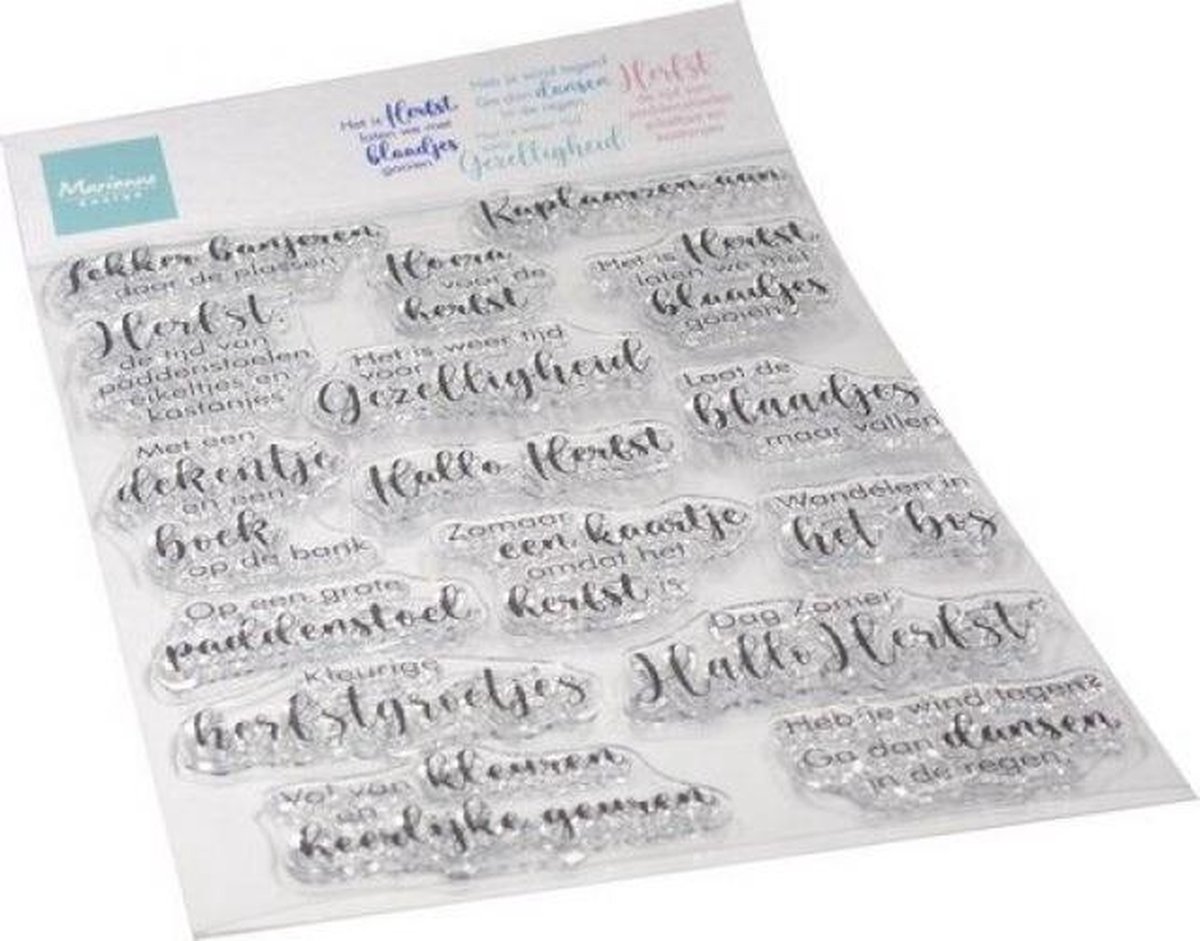 Marianne
design
Het is Herfst
laten we met
blaadjes
gooien
Heb je wind tegen?
Ga dan dansen
in de regen
Het is weer tijd
voor
Gezelligheid
Herfst
de tijd van
paddenstoelen
eikeltjes en
kastanjes
Kaplaarzen aan
Lekker banjeren
door de plassen
Hoera
voor de
herfst
Het is Herfst
laten we met
blaadjes
gooien
Herfst.
de tijd van
paddenstoelen
eikeltjes en
kastanjes
Het is weer tijd
voor
Gezelligheid
Laat de
blaadjes
maar vallen
Met een
dekentje
en een
boek
op de bank
Hallo Herfst
Zomaar
een kaartje
omdat het
herfst is
Wandelen in
het bos
Op een grote
paddenstoel
Dag Zomer
Hallo Herfst
Kleurige
herfstgroetjes
Heb je wind tegen?
Ga dan dansen
in de regen.
Vol van kleuren
en
heerlijke geuren